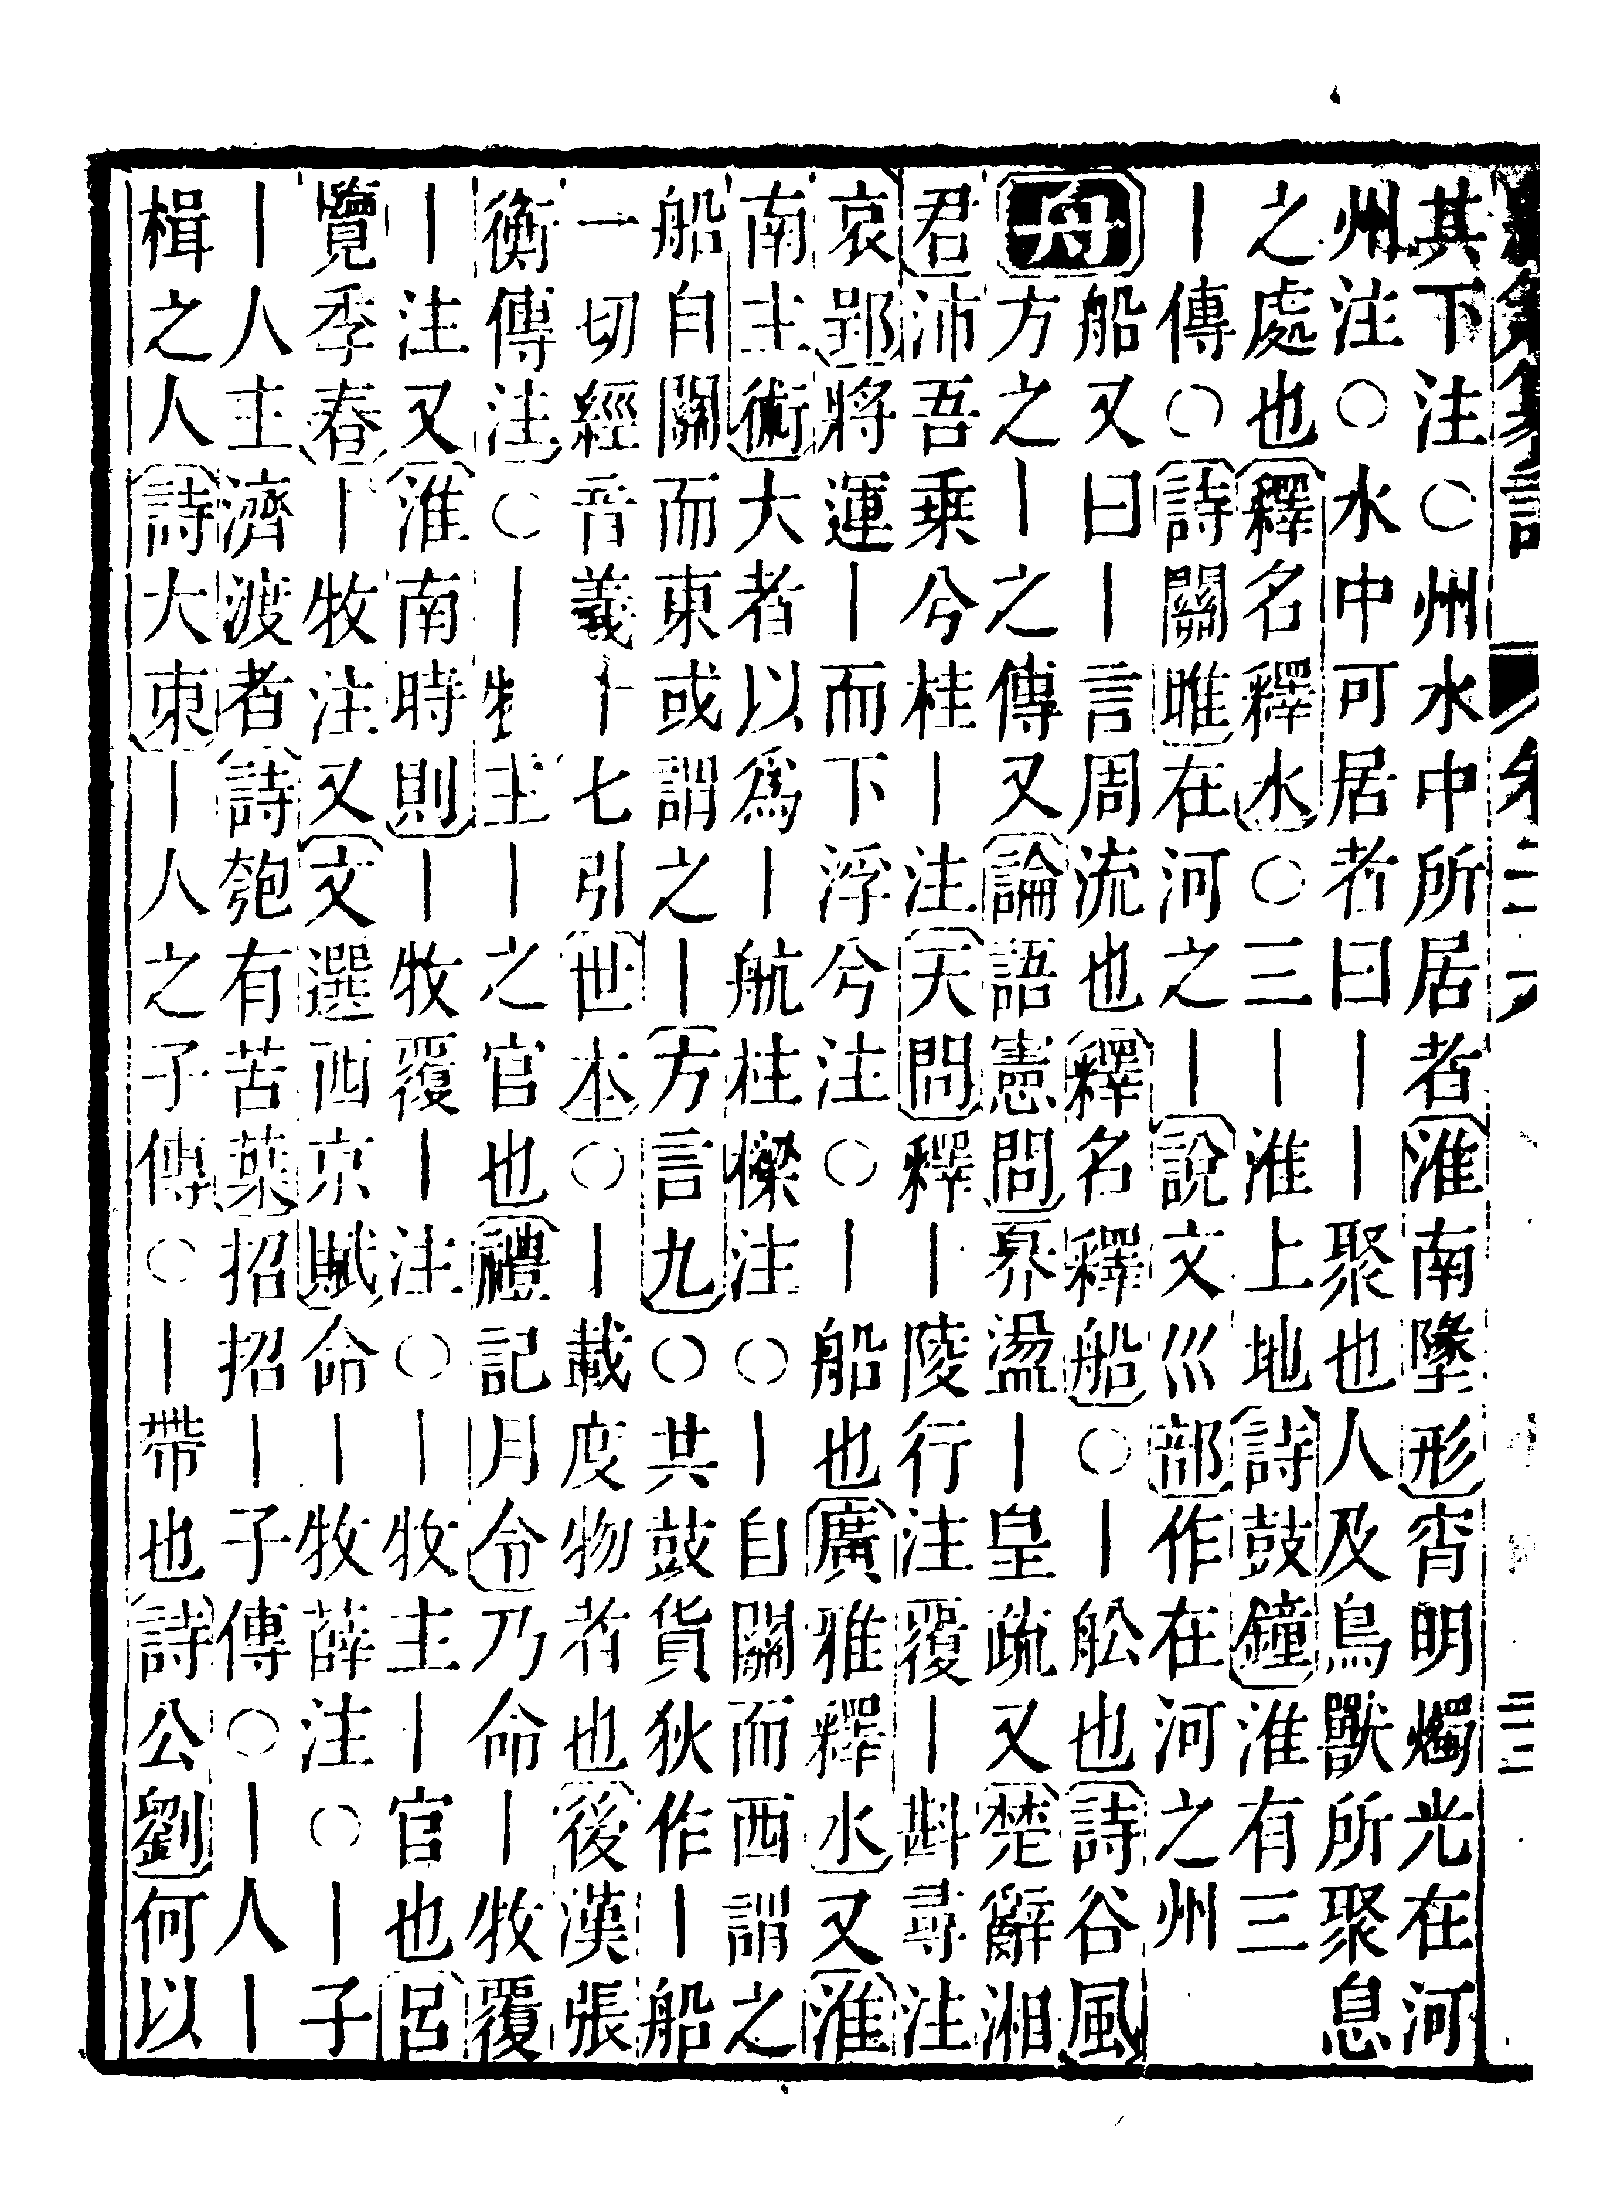 其下注○州水中所居者淮南墬形宵明燭光在河
州注○水中可居者曰丨丨聚也人及鳥獸所聚息
之處也釋名釋水○三丨淮上地詩鼓鐘淮有三
丨傳○詩關雎在河之丨說文巛部作在河之州
舟船又曰丨言周流也釋名釋船○丨舩也詩谷風
方之丨之傳又論語憲問奡盪丨皇疏又楚辭湘
君沛吾乗兮桂丨注天問釋丨陵行注覆丨斟尋注
哀郢將運丨而下浮兮注○丨船也廣雅釋水又淮
南主術大者以爲丨航柱樑注○丨自關而西謂之
船自關而東或謂之丨方言九○共鼓貨狄作丨船
一切經音義十七引世本○丨載度物者也後漢張
衡傳注○丨牧主丨之官也禮記月令乃命丨牧覆
丨注又淮南時則丨牧覆丨注○丨牧主丨官也呂
覽季春丨牧注又文選西京賦命丨牧薛注○丨子
丨人主濟渡者詩匏有苦葉招招丨子傳○丨人丨
楫之人詩大東丨人之子傳○丨帶也詩公劉何以